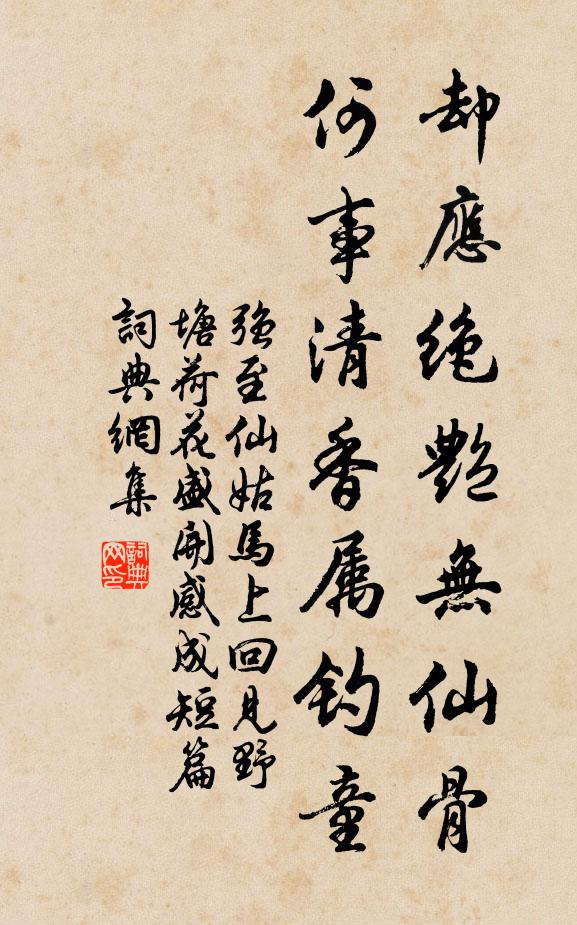 却應絶艷無仙骨
何事清香属钓童
强至仙姑馬上回見野
塘荷花盛開感成短篇
詞典網集
詞典网印